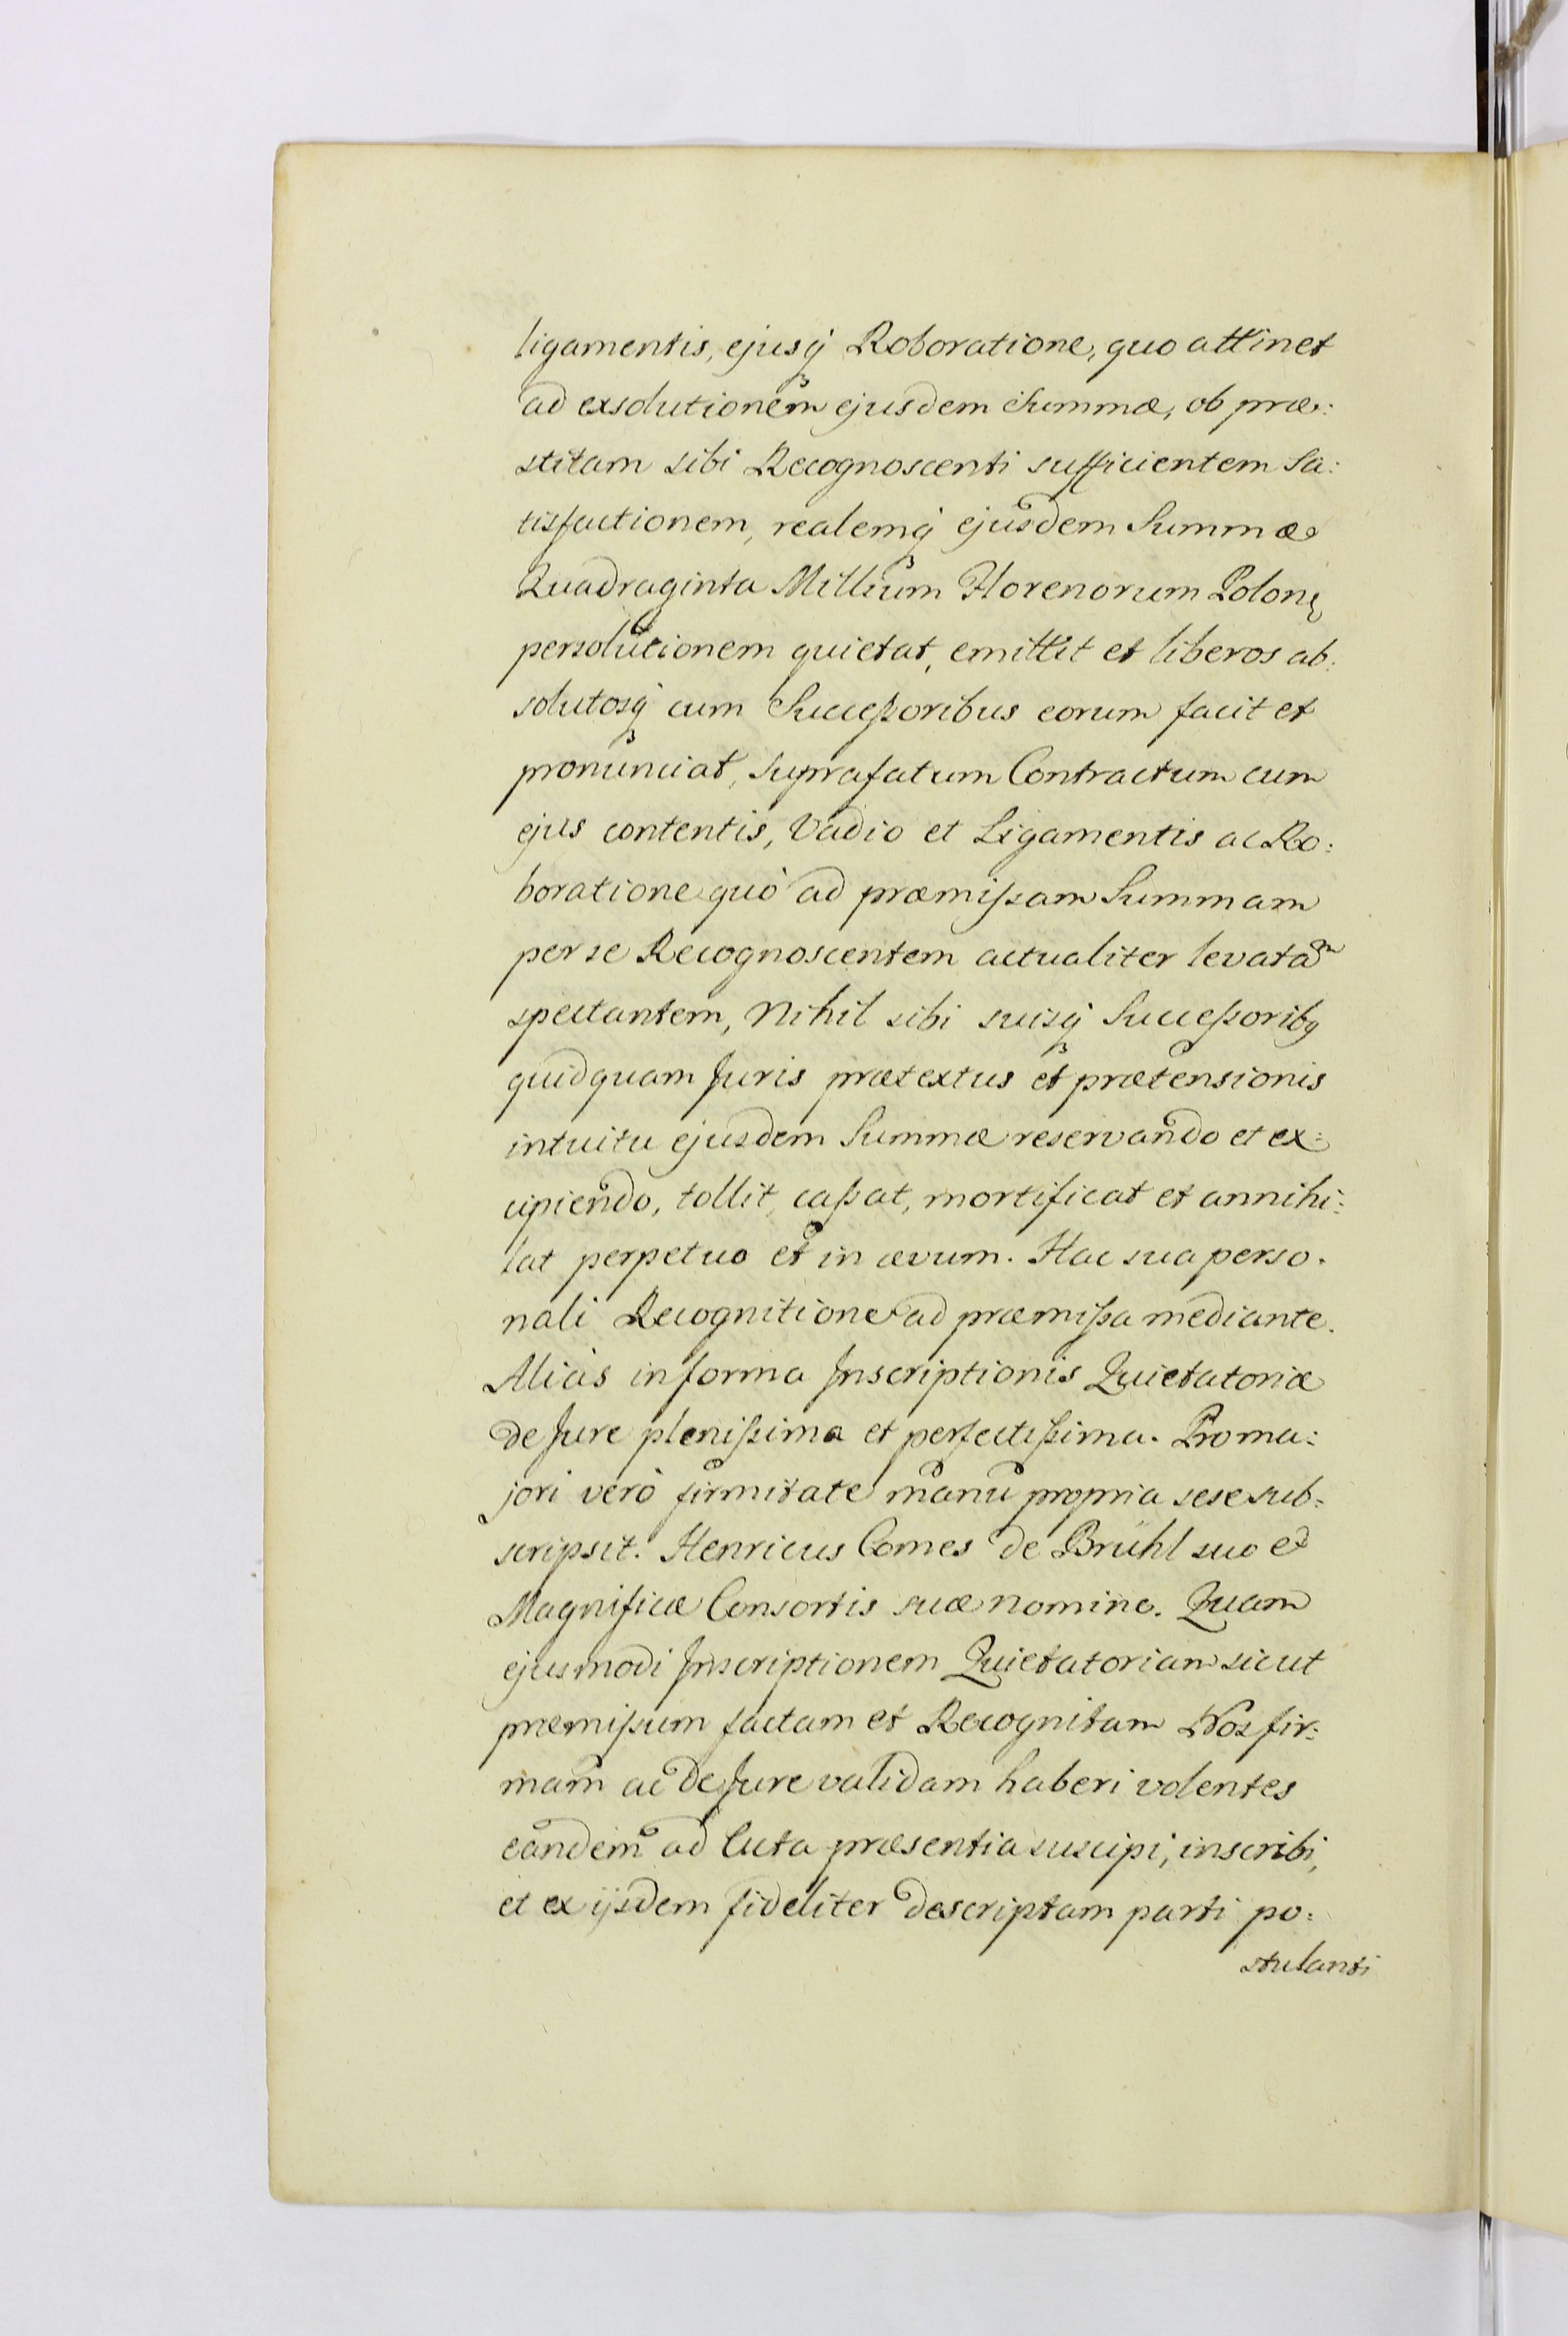 ligamentis, ejusq₃ Roboratione, quo attinet
ad exsolutionem ejusdem Summæ, ob præ:
stitam sibi Recognoscenti sufficientem Sa:
tisfactionem, realemq₃ ejusdem Summæ
Quadraginta Millium Florenorum Polon:
persolutionem quietat, emittit et liberos ab:
solutosq₃ cum Succeßoribus eorum facit et
pronunciat, suprafatum Contractum cum
ejus contentis, Vadio et Ligamentis ac Ro:
boratione quò ad præmißam Summam
per se Recognoscentem actualiter levatam
spectantem, Nihil sibi suisq₃ Succeßoribq
quidquam Juris prætextus et prætensionis
intuitu ejusdem Summæ reservando et ex:
cipiendo, tollit, caßat, mortificat et annihi:
lat perpetuo et in ævum. Hac sua perso.
nali Recognitione ad præmißa mediante.
Aliàs in forma Inscriptionis Quietatoriæ
de Jure plenißima et perfectißima. Pro ma:
jori verò firmitate manu propria sese sub:
scripsit. Henricus Comes de Brühl suo et
Magnificæ Consortis suæ nomine. Quam
ejusmodi Inscriptionem Quietatoriam sicut
præmißum factam et Recognitam Nos fir:
mam ac de Jure validam haberi volentes
eandem ad Acta præsentia suscipi, inscribi,
et ex ijsdem fideliter descriptam parti po:
stulanti